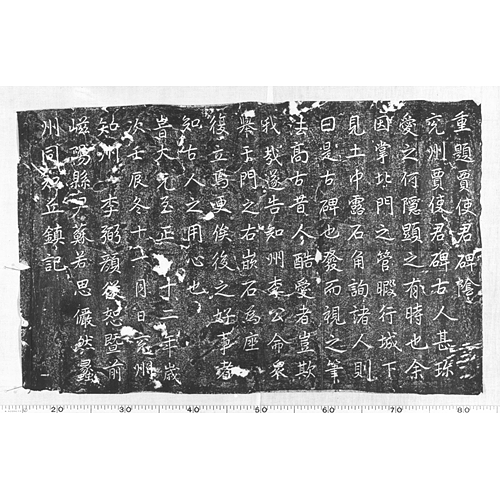 重題賈使君碑陰
兗州賈使君碑古人甚珎
愛之何隠顕之有時也余
因掌北門之管暇行城下
見土中露石角詢諸人則
曰是古碑也發而視之筆
法髙古昔人酷愛者豈欺
我哉遂告知州李公命衆
舉于門之右嵌石為座
復立焉更俟後之好事者
知古人之用心也
大元至正十二年歳
次壬辰冬十二月日兖州
知州李弼顔恕暨前
嵫陽縣蘇若思儼然
州同丘鎮記
20 30 40 50 60 70 80